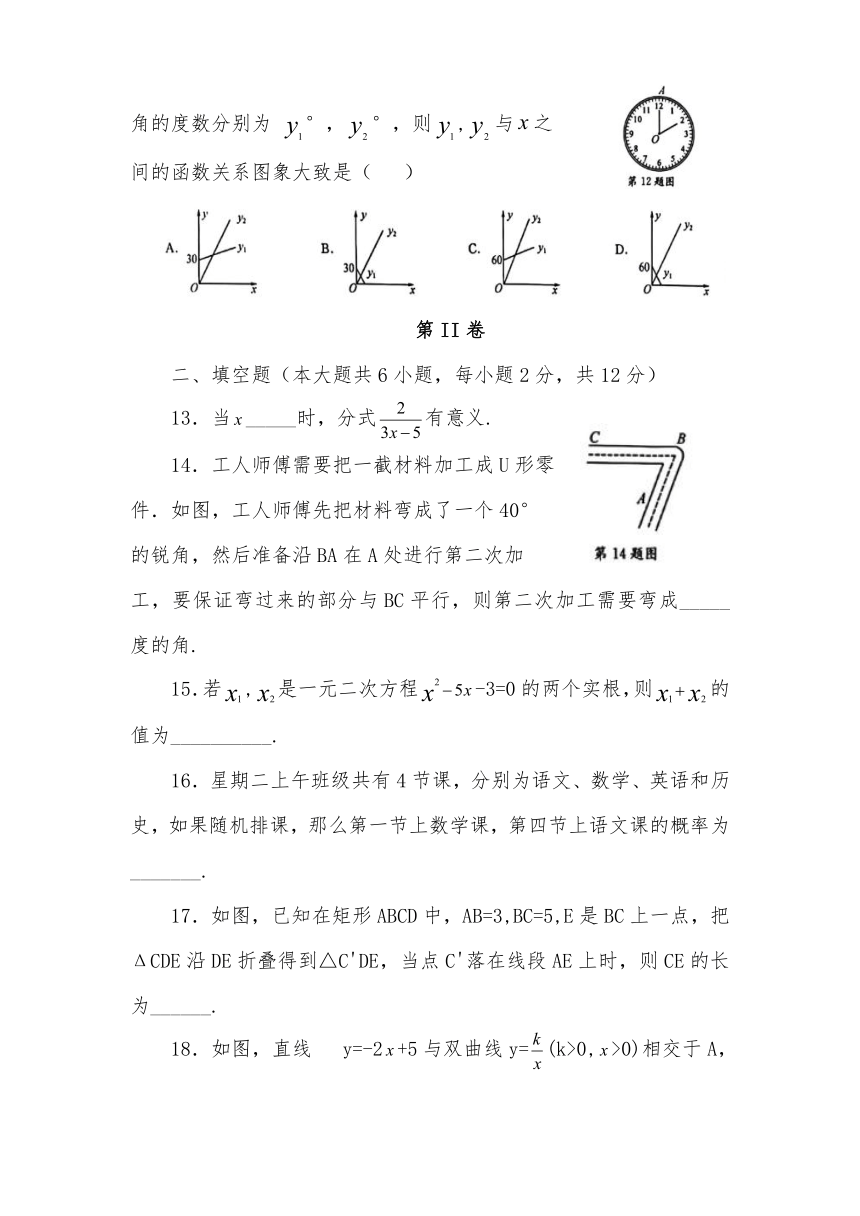 角的度数分别为 y₁°, y₂°,则 y₁, y₂ 与 x 之
间的函数关系图象大致是( )
A
12 1 2 3 4 5 6 7 8 9 10 11
O
第12题图
A. y y₂ y₁ 30 O x
B. y y₂ 30 y₁ O x
C. y y₂ 60 y₁ O x
D. y y₂ 60 y₁ O x
第 II 卷
二、填空题(本大题共6小题,每小题2分,共12分)
13.当 x_____时,分式 2/(3x-5) 有意义.
14.工人师傅需要把一截材料加工成U形零
件.如图,工人师傅先把材料弯成了一个40°
的锐角,然后准备沿BA在A处进行第二次加
C B
A
第14题图
工,要保证弯过来的部分与BC平行,则第二次加工需要弯成_____
度的角.
15.若 x₁, x₂ 是一元二次方程 x²-5x-3=0的两个实根,则 x₁+x₂ 的
值为__________.
16.星期二上午班级共有4节课,分别为语文、数学、英语和历
史,如果随机排课,那么第一节上数学课,第四节上语文课的概率为
_______.
17.如图,已知在矩形ABCD中,AB=3,BC=5,E是BC上一点,把
ΔCDE沿DE折叠得到△C'DE,当点C'落在线段AE上时,则CE的长
为______.
18.如图,直线 y=-2x+5与双曲线y=k/x(k>0,x>0)相交于A,